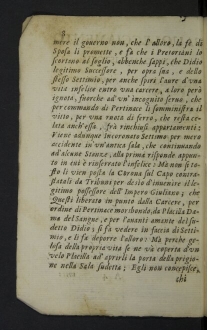 mere il governo non, che l'alloro, la fè di
Sposa li promette, e fà che i Pretoriani lo
scortano al soglio, abbenche sappi, che Didio
legitimo Successore, per opra sua, e dello
stesso Settimio, per anche spira l'aure d'una
vita infelice entro una carcere, a loro però
ignoto, fuorche ad un' incognito servo, che
per commando di Pertinace li somministra il
vitto, per una ruota di ferro, che resta ce-
lata anch'essa frà rinchiusi appartamenti;
Viene adunque incoronato Settimio per novo
accidente in un'antica sala, che continuando
ad alcune Stanze, alla prima risponde appun-
to in cui è rinserrato l'infelice: Mà non sì to-
sto li vien posta la Corona sul Capo contra-
statali da Tribuni per desio d'innenire il le-
gitimo possessore dell' Impero Giuliano; che
Questi liberato in punto dalla Carcere, per
ordine di Pertinace moribondo, da Placilla Da-
ma del Sangue, e per l'auanti amante del su-
detto Didio; si fa vedere in faccia di Setti-
mio, e li fa deporre l'alloro: Mà perche ge-
losa della propria vita se ne và coperta d'un
velo Placilla ad aprirli la porta della prigio-
ne nella Sala sudetta; Egli non concepisce,
chi